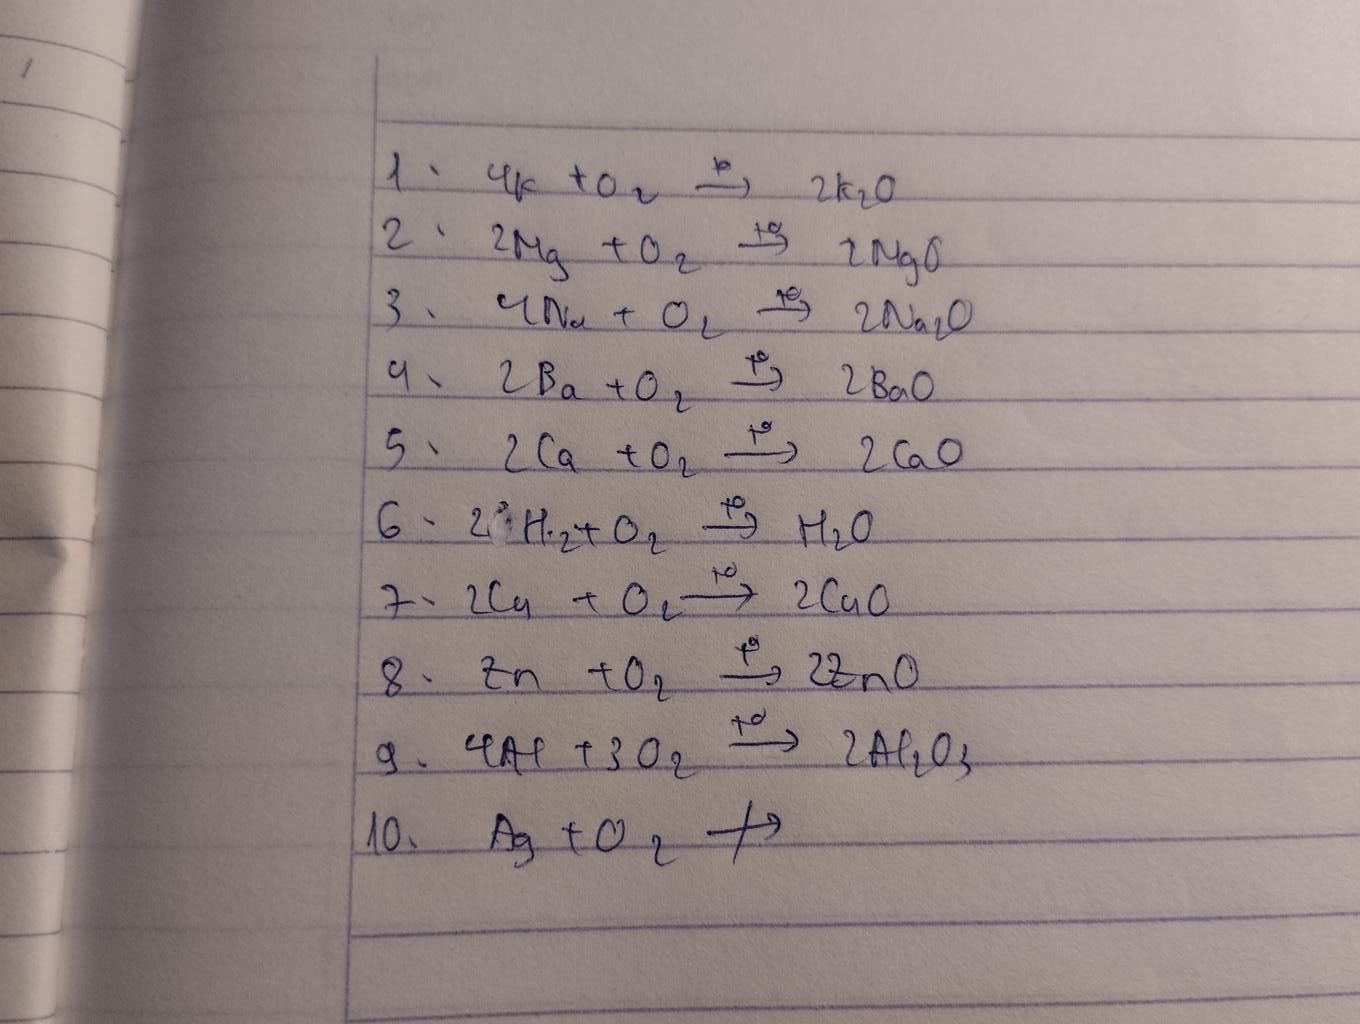 1. 4K + O2 →t° 2K2O
2. 2Mg + O2 →t° 2MgO
3. 4Na + O2 →t° 2Na2O
4. 2Ba + O2 →t° 2BaO
5. 2Ca + O2 →t° 2CaO
6. 2H2 + O2 →t° H2O
7. 2Cu + O2 →t° 2CuO
8. Zn + O2 →t° 2ZnO
9. 4Al + 3O2 →t° 2Al2O3
10. Ag + O2 ↛